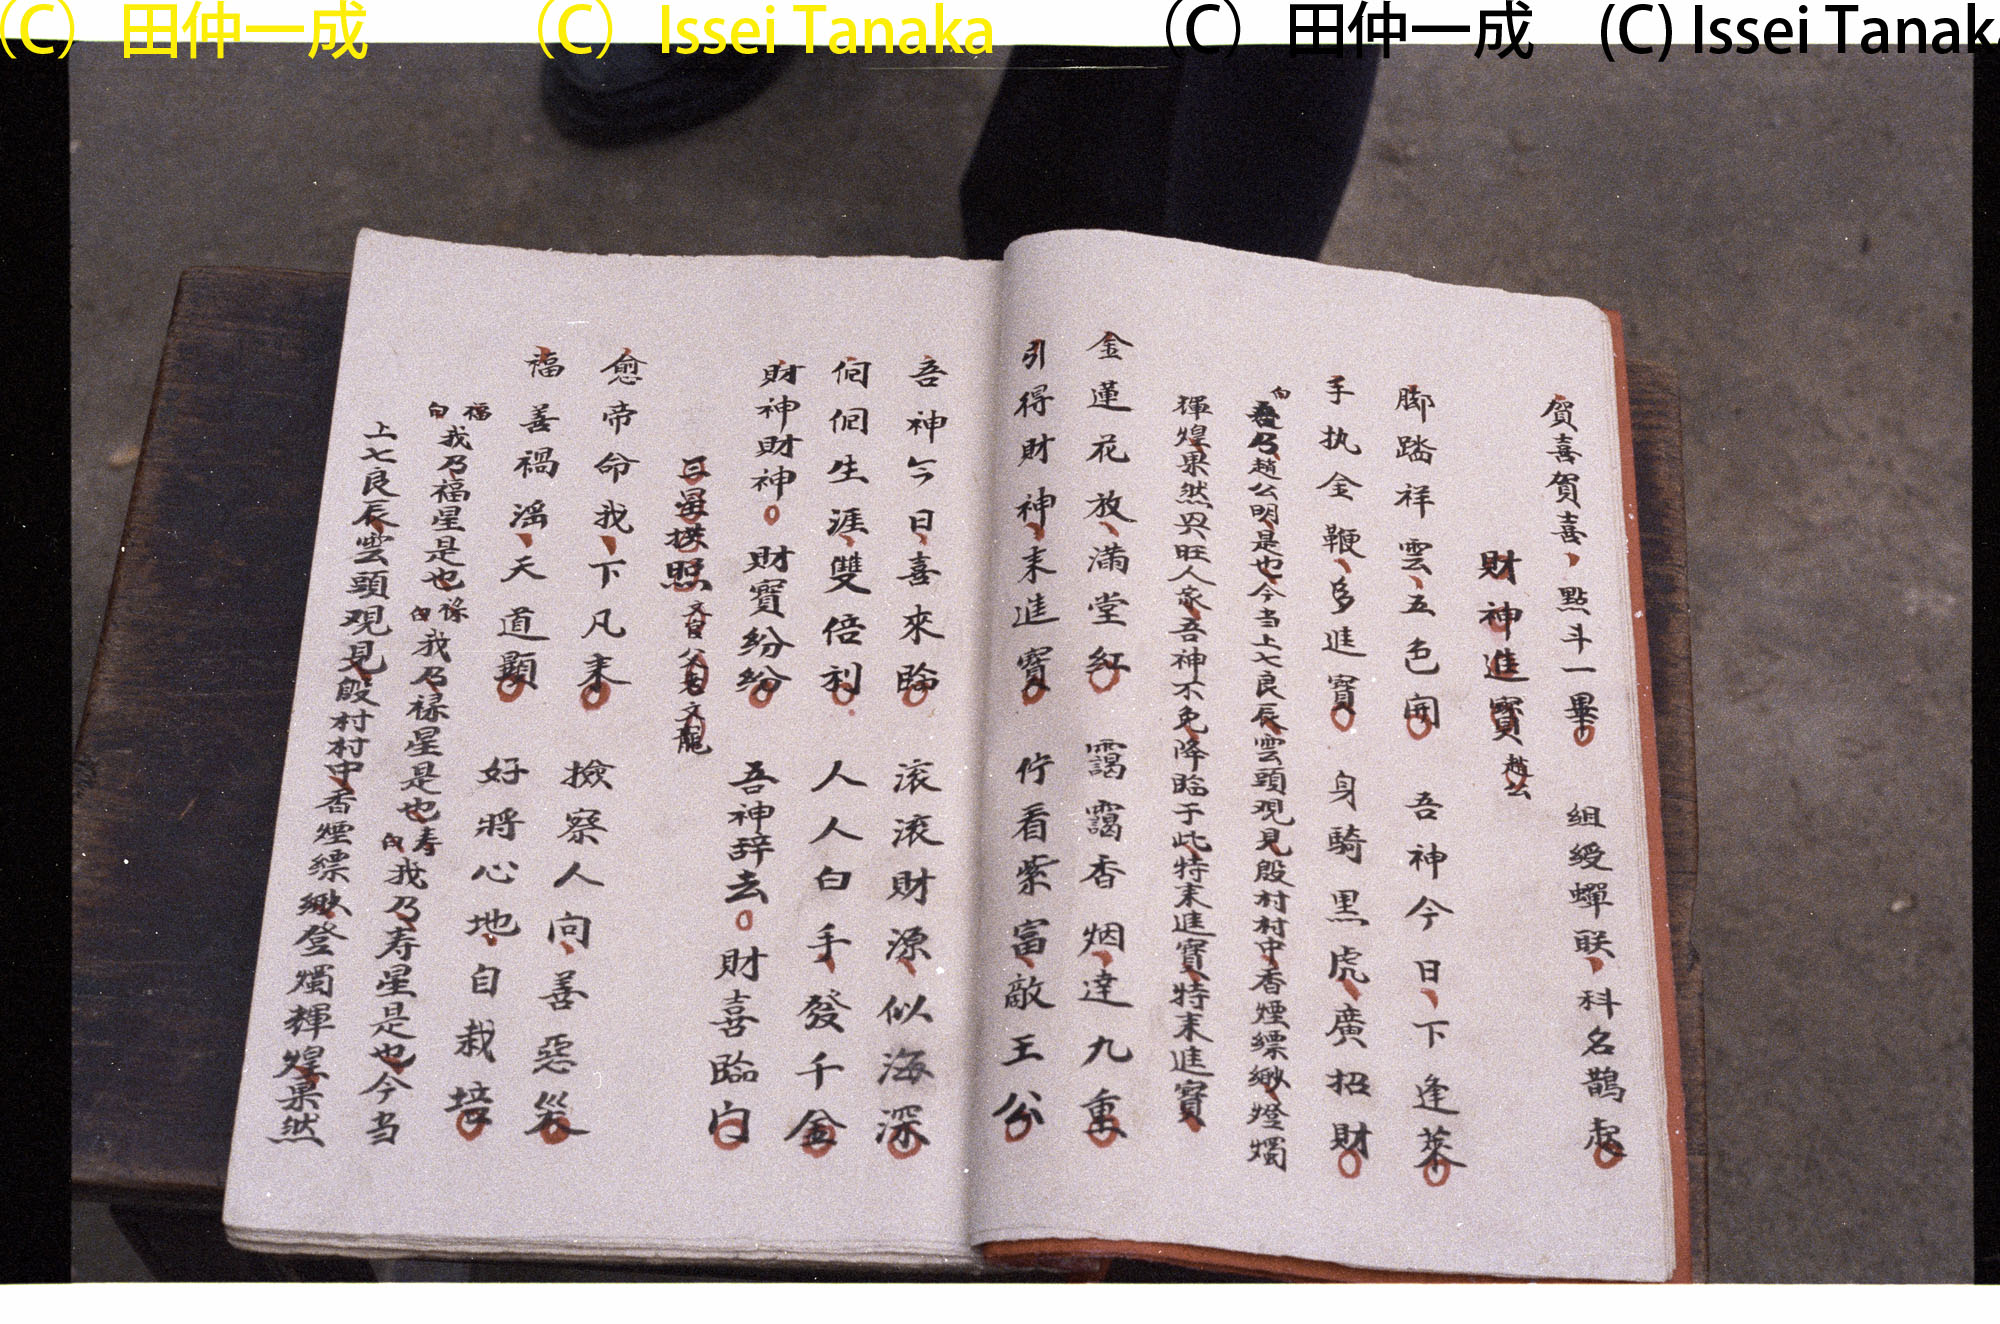 (C) 田仲一成 (C) Issei Tanaka (C) 田仲一成 (C) Issei Tanaka
賀喜賀喜點斗一畢 組綬蟬联科名鵲起
財神進寶 趙公
脚踏祥雲五色開 吾神今日下逢萊
手执金鞭多進寶 身騎黑虎廣招財
白 吾乃趙公明是也今当上七良辰雲頭观見殷村村中香煙縹緲燈燭
輝煌果然興旺人家吾神不免降臨于此特来進寶特来進寶
金蓮花放滿堂紅 靄靄香烟達九重
引得財神来進寶 佇看紫富敵王公
吾神今日喜來臨 滚滚財源似海深
伺伺生涯雙倍利 人人白手發千金
財神財神 財寶紛紛 吾神辞去 財喜臨门
三星拱照
愈帝命我下凡来 撿察人向善惡災
福善禍滛天道顯 好將心地自栽培
福白 我乃福星是也 禄白 我乃禄星是也 寿白 我乃寿星是也今当
上七良辰雲頭观見殷村村中香煙縹緲登燭輝煌果然